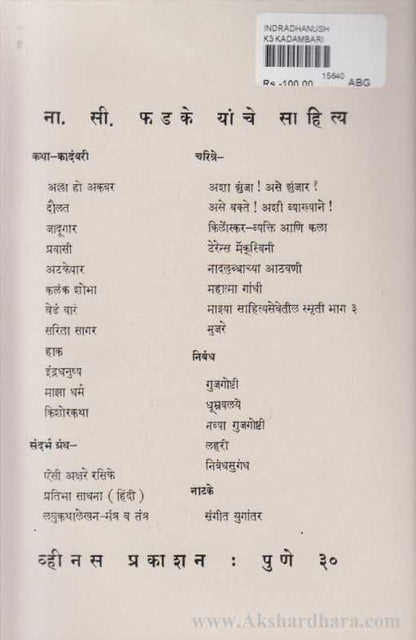 INDRADHANUSH
K3 KADAMBARI
15640
Rs.-100.00 ABG
ना. सी. फडके यांचे साहित्य
कथा-कादंबरी
अल्ला हो अकबर
दौलत
जादूगार
प्रवासी
अटकेपार
कलंक शोभा
वेडं वारं
सरिता सागर
हाक
इंद्रधनुष्य
माझा धर्म
किशोरकथा
संदर्भ ग्रंथ-
ऐसी अक्षरे रसिके
प्रतिभा साधना ( हिंदी )
लघुकथालेखन-मंत्र व तंत्र
चरित्रे-
अशा झुंजा ! असे झुंजार !
असे वक्ते ! अशी व्याख्याने !
किर्लोस्कर-व्यक्ति आणि कला
टेरेन्स मॅक्स्विनी
नादलुब्धाच्या आठवणी
महात्मा गांधी
माझ्या साहित्यसेवेतील स्मृती भाग ३
मुजरे
निबंध
गुजगोष्टी
धूम्रवलये
नव्या गुजगोष्टी
लहरी
निबंधसुगंध
नाटके
संगीत युगांतर
व्हीनस प्रकाशन : पुणे ३०
www.Akshardhara.com